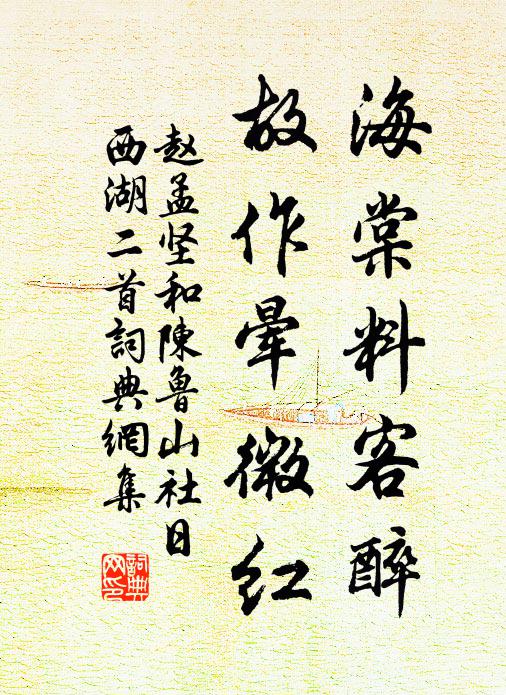 海棠料客醉
故作暈微红
赵孟坚和陳魯山社日
西湖二首詞典網集
詞典网印